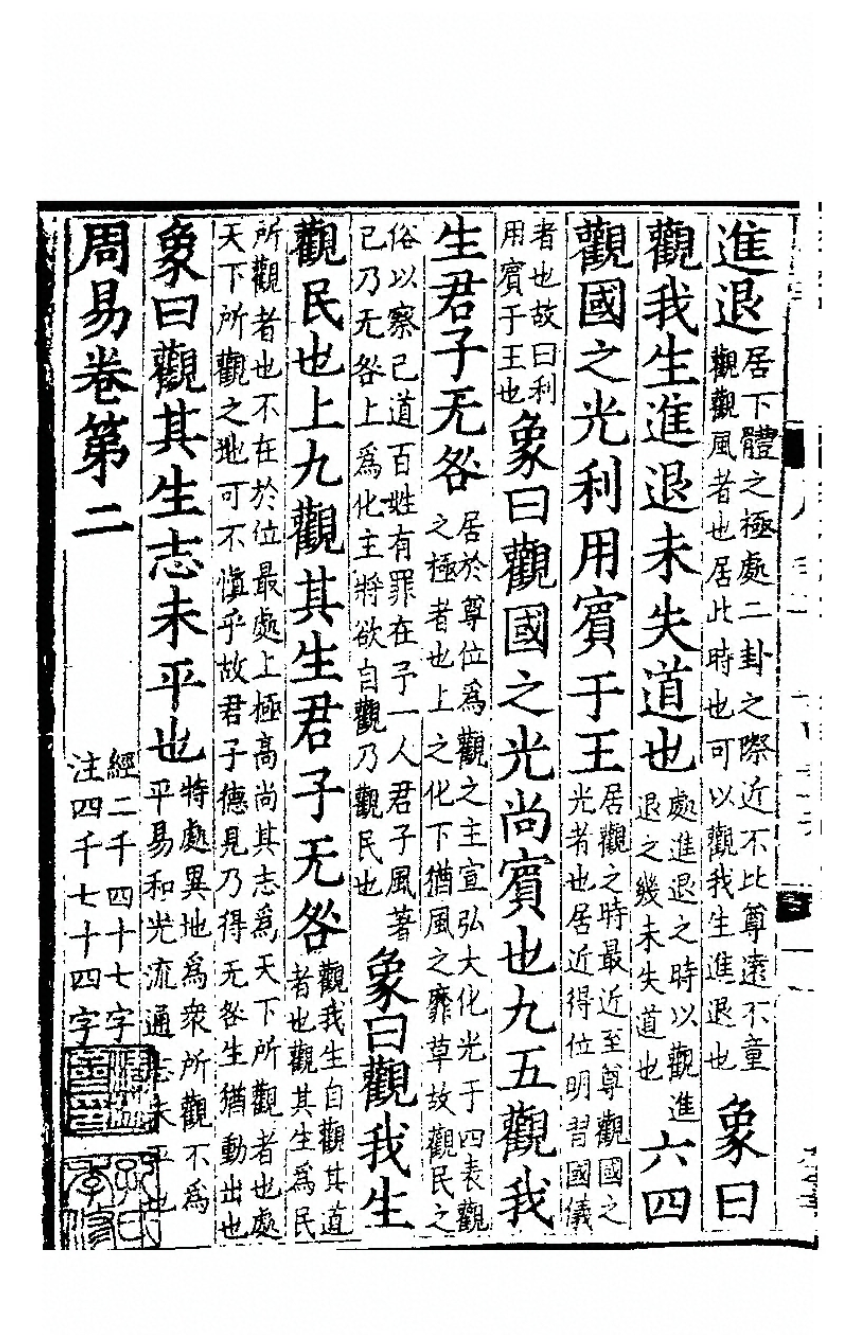 進退居下體之極處二卦之際近不比尊遠不童觀觀風者也居此時也可以觀我生進退也象曰
觀我生進退未失道也處進退之時以觀進退之幾未失道也六四
觀國之光利用賓于王居觀之時最近至尊觀國之光者也居近得位明習國儀
者也故曰利用賓于王也象曰觀國之光尚賓也九五觀我
生君子无咎居於尊位爲觀之主宣弘大化光于四表觀之極者也上之化下猶風之靡草故觀民之
俗以察己道百姓有罪在予一人君子風著己乃无咎上爲化主將欲自觀乃觀民也象曰觀我生
觀民也上九觀其生君子无咎觀我生自觀其道者也觀其生爲民
所觀者也不在於位最處上極高尚其志爲天下所觀者也處天下所觀之地可不愼乎故君子德見乃得无咎生猶動出也
象曰觀其生志未平也特處異地爲衆所觀不爲平易和光流通志未平也
周易卷第二
經二千四十七字
注四千七十四字